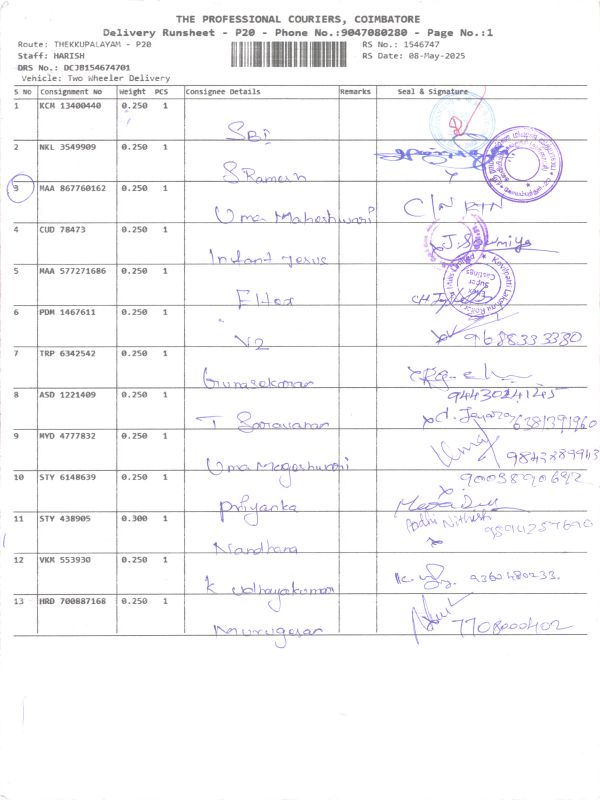 THE PROFESSIONAL COURIERS, COIMBATORE
Delivery Runsheet - P20 - Phone No.:9047080280 - Page No.:1
Route: THEKKUPALAYAM - P20 RS No.: 1546747
Staff: HARISH RS Date: 08-May-2025
DRS No.: DCJB154674701
Vehicle: Two Wheeler Delivery
S No Consignment No Weight PCS Consignee Details Remarks Seal & Signature
1 KCM 13400440 0.250 1
SBI
2 NKL 3549909 0.250 1
S Ramesh
3 MAA 867760162 0.250 1
Uma Maheshwari
4 CUD 78473 0.250 1
Instant Jesus J. Sowmiya
5 MAA 577271686 0.250 1
6 PDM 1467611 0.250 1
V2 9688333380
7 TRP 6342542 0.250 1
Gunasekaran
8 ASD 1221409 0.250 1 9443024145
T Saravanan 6381391960
9 MYD 4777832 0.250 1
Uma Mageshwari 9843289943
10 STY 6148639 0.250 1 9003890692
Priyanka
11 STY 438905 0.300 1 Nithesh
Nandhana 9894257690
12 VKM 553930 0.250 1
K Udhayakumar 9360480233.
13 HRD 700887168 0.250 1
Murugesan 7708000402